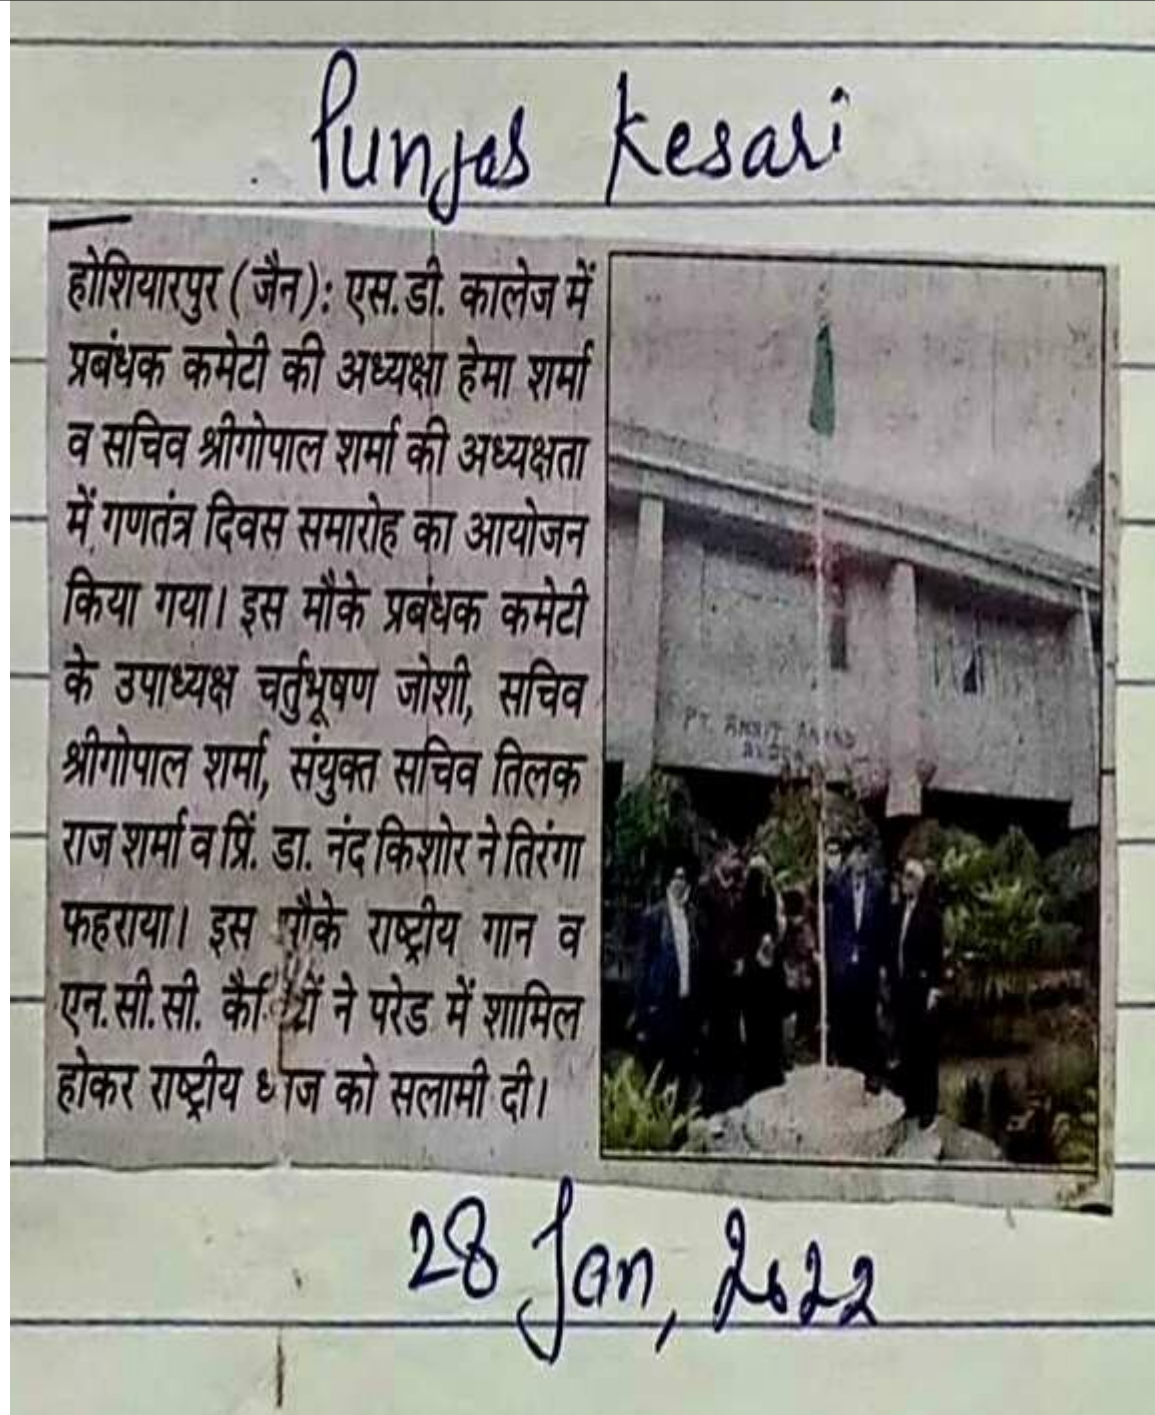 Punjab Kesari
होशियारपुर (जैन): एस.डी. कालेज में
प्रबंधक कमेटी की अध्यक्षा हेमा शर्मा
व सचिव श्रीगोपाल शर्मा की अध्यक्षता
में गणतंत्र दिवस समारोह का आयोजन
किया गया। इस मौके प्रबंधक कमेटी
के उपाध्यक्ष चर्तुभूषण जोशी, सचिव
श्रीगोपाल शर्मा, संयुक्त सचिव तिलक
राज शर्मा व प्रिं. डा. नंद किशोर ने तिरंगा
फहराया। इस मौके राष्ट्रीय गान व
एन.सी.सी. कैडिटों ने परेड में शामिल
होकर राष्ट्रीय ध्वज को सलामी दी।
PT. AMRIT ANAND
28 Jan, 2022